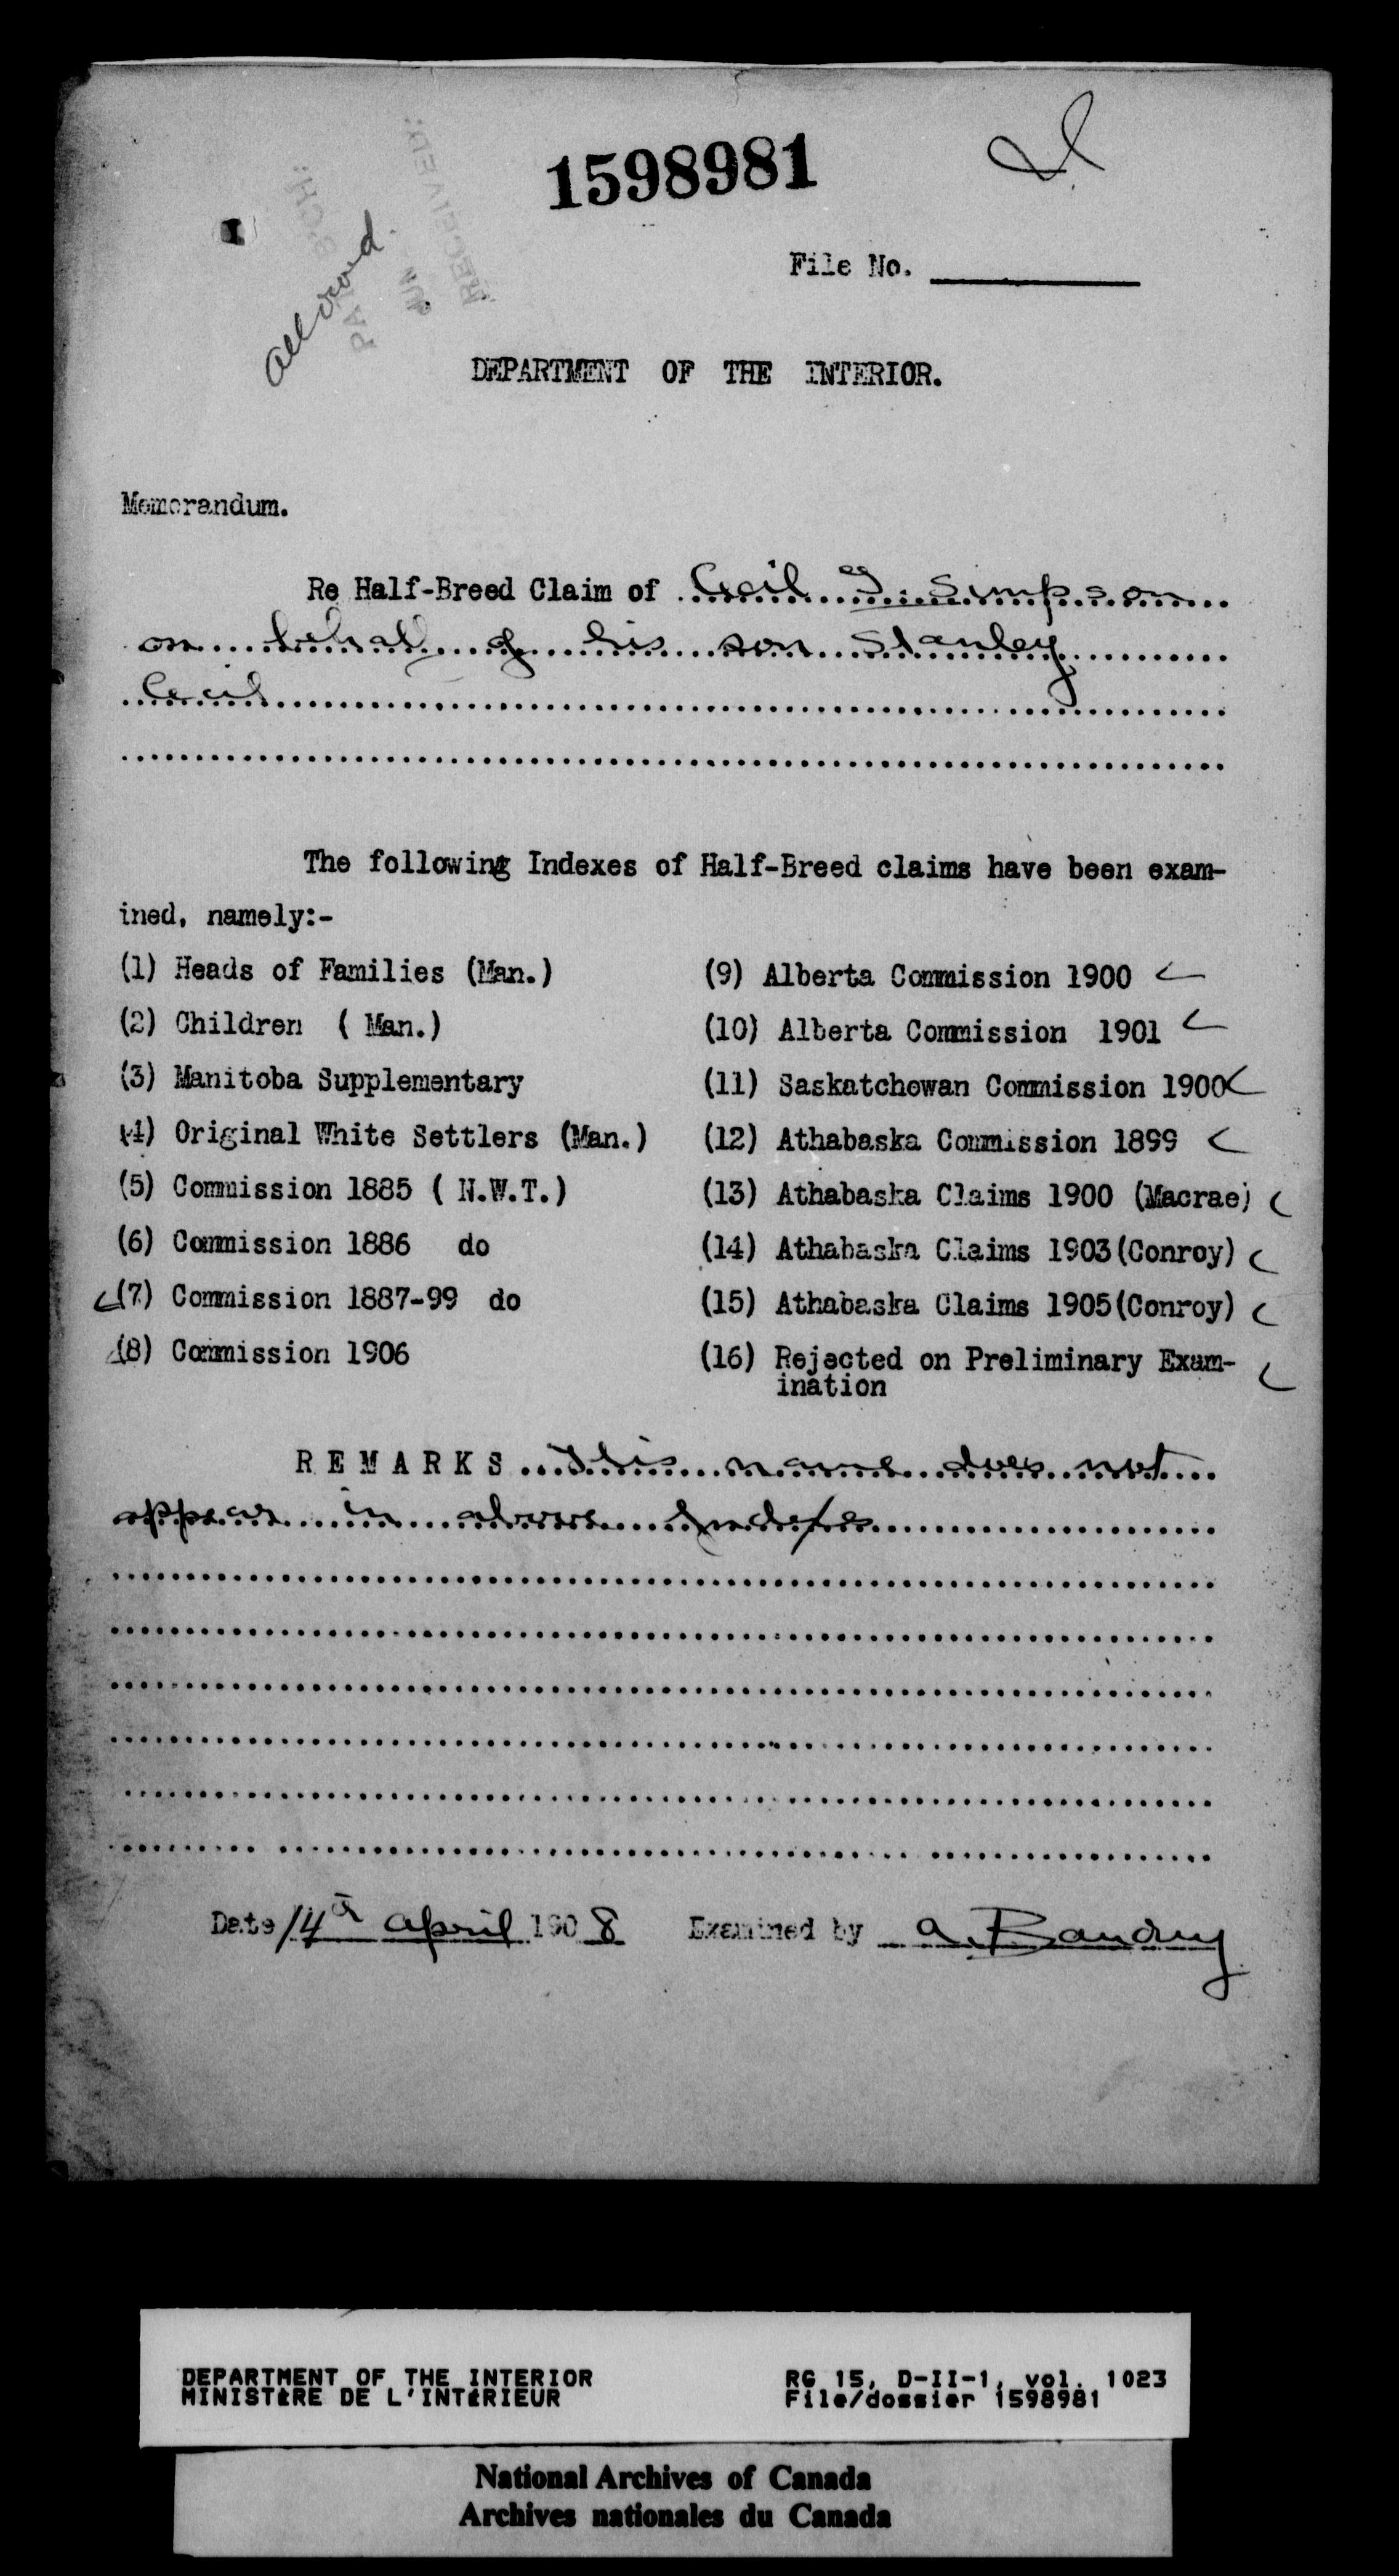 1598981
File No.
allowed
DEPARTMENT OF THE INTERIOR.
Memorandum.
Re Half-Breed Claim of Cecil Simpson
on behalf of his son Stanley
Cecil
The following Indexes of Half-Breed claims have been exam-
ined, namely:-
(1) Heads of Families (Man.)
(2) Children ( Man.)
(3) Manitoba Supplementary
(4) Original White Settlers (Man.)
(5) Commission 1885 ( N.W.T.)
(6) Commission 1886 do
(7) Commission 1887-99 do
(8) Commission 1906
(9) Alberta Commission 1900
(10) Alberta Commission 1901
(11) Saskatchewan Commission 1900
(12) Athabaska Commission 1899
(13) Athabaska Claims 1900 (Macrae)
(14) Athabaska Claims 1903(Conroy)
(15) Athabaska Claims 1905(Conroy)
(16) Rejected on Preliminary Exam-
ination
REMARKS This name does not
appear in above Indexes
Date 14th April 1908 Examined by A. Baudry
DEPARTMENT OF THE INTERIOR
MINISTÈRE DE L'INTÉRIEUR
RG 15, D-II-1, vol. 1023
File/dossier 1598981
National Archives of Canada
Archives nationales du Canada